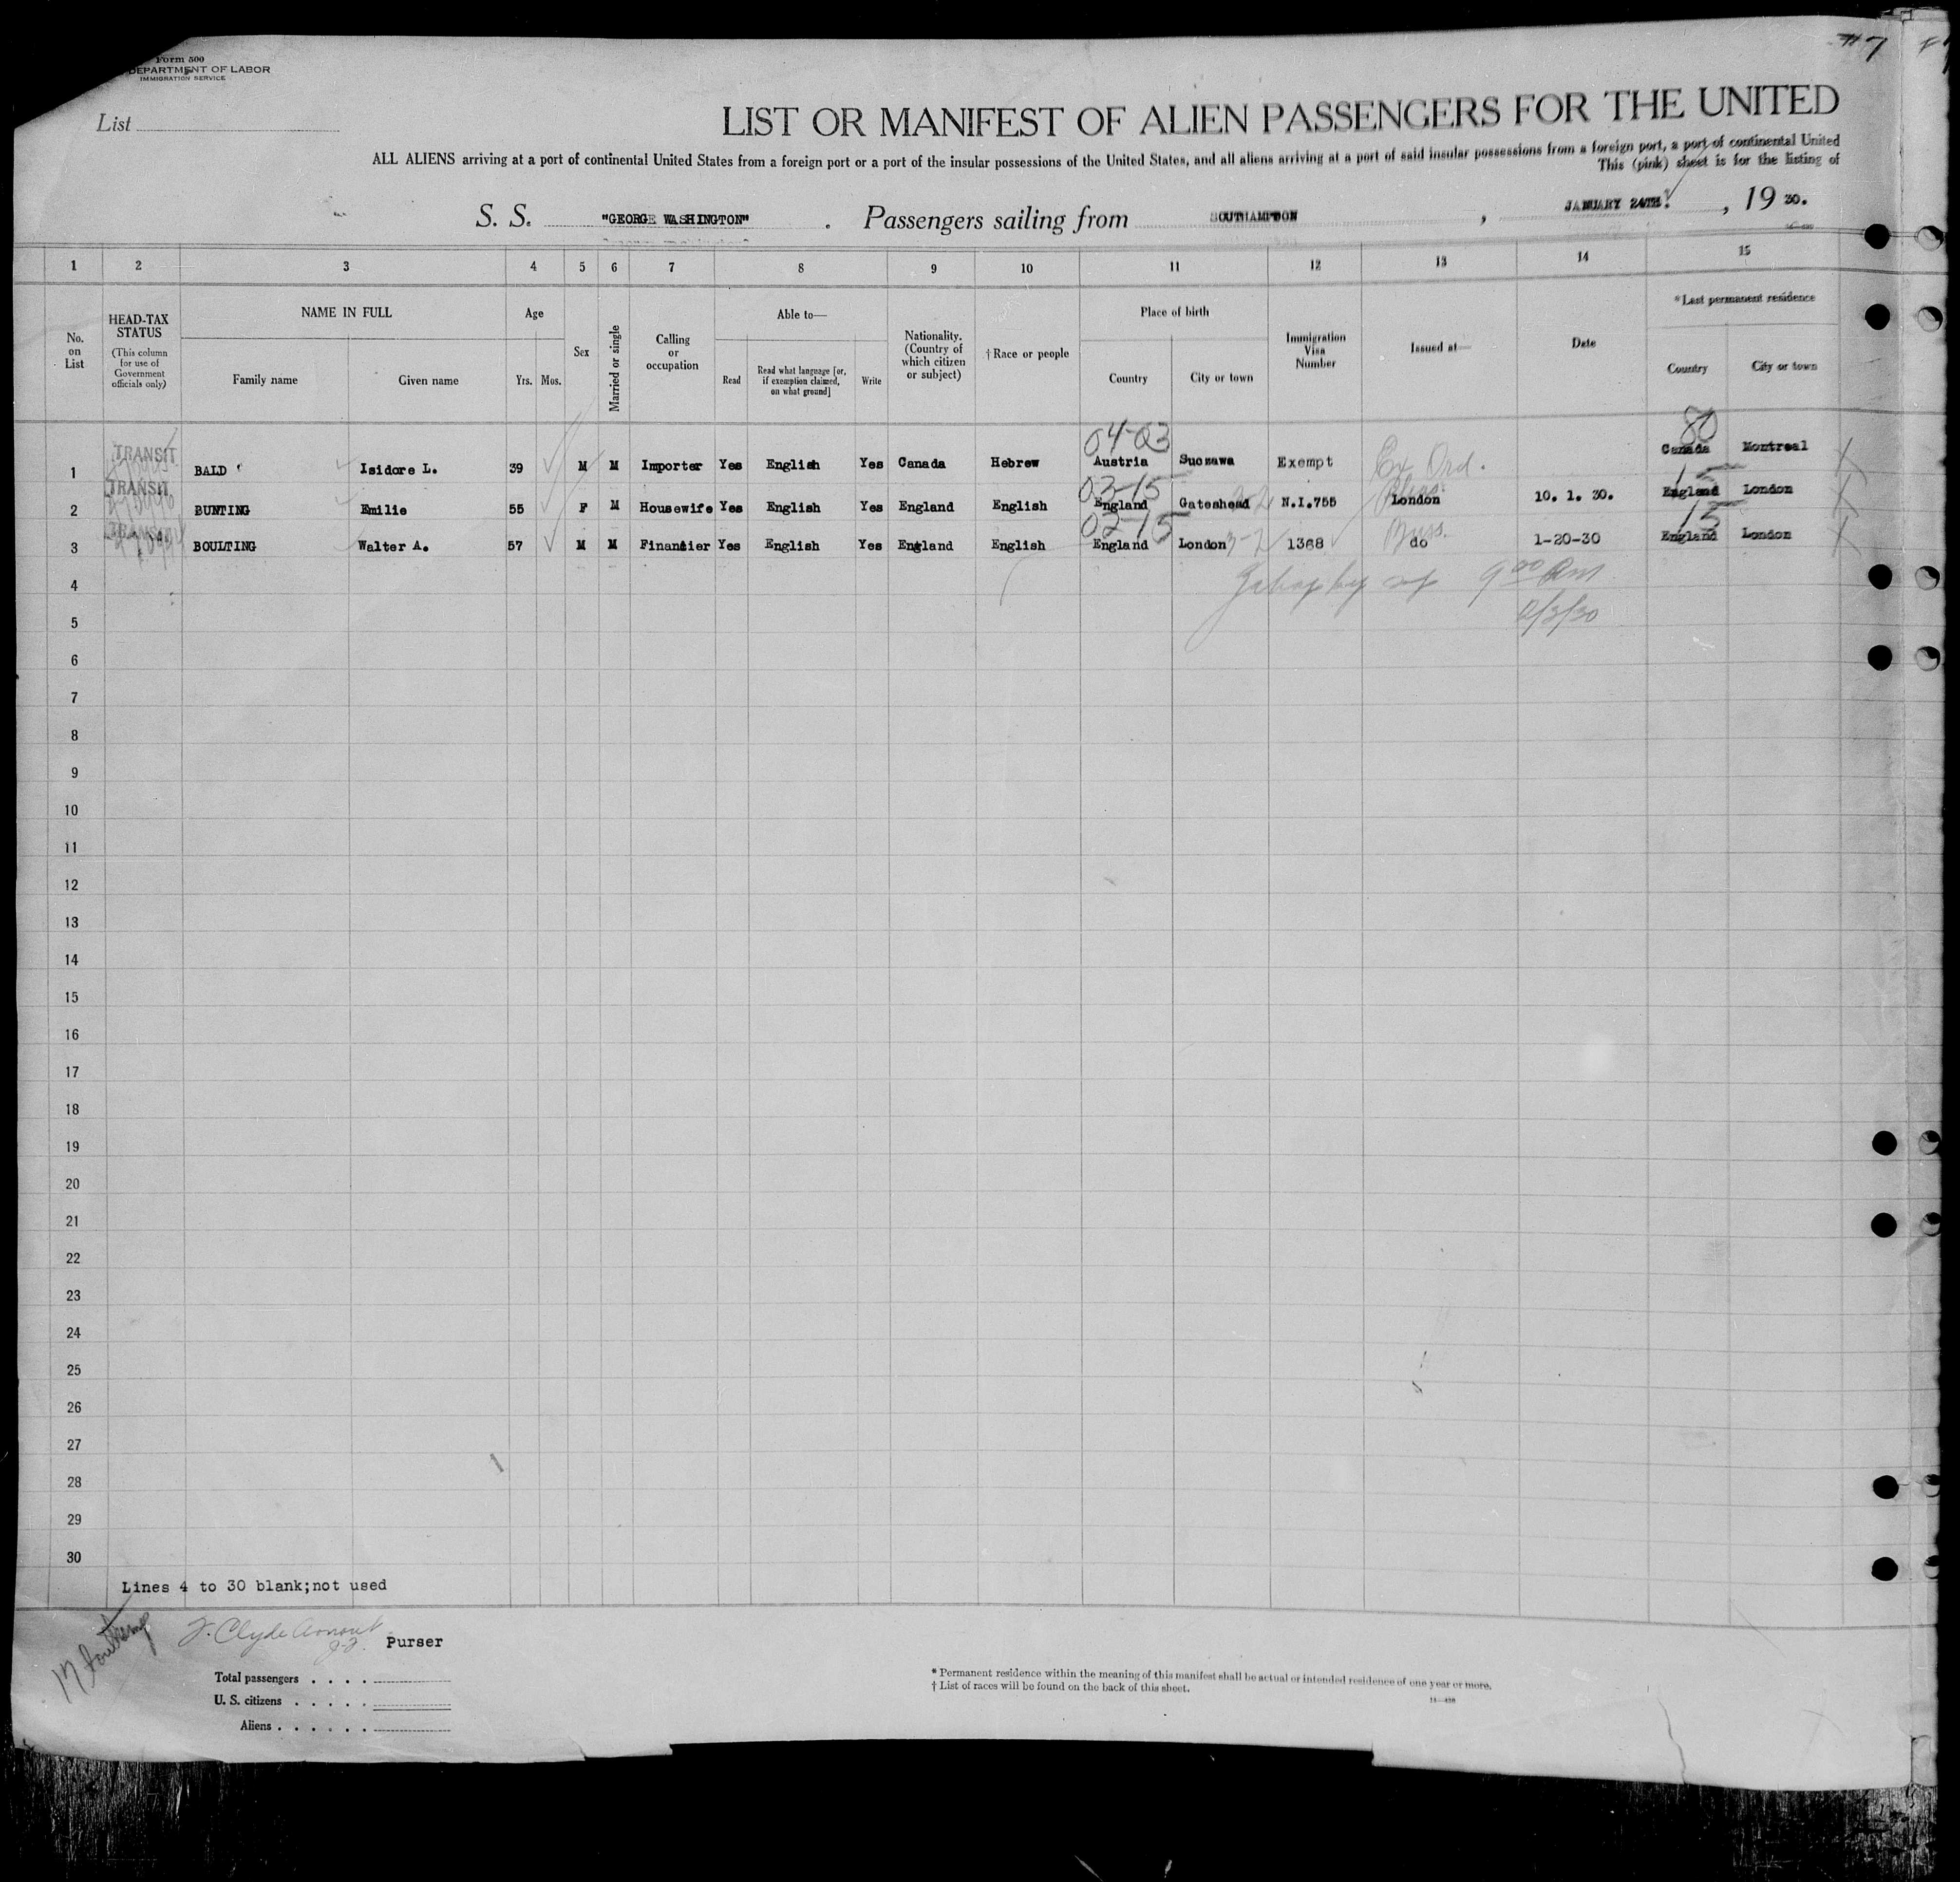 #7
Form 500
DEPARTMENT OF LABOR
IMMIGRATION SERVICE
List
LIST OR MANIFEST OF ALIEN PASSENGERS FOR THE UNITED
ALL ALIENS arriving at a port of continental United States from a foreign port or a port of the insular possessions of the United States, and all aliens arriving at a port of said insular possessions from a foreign port, a port of continental United
This (pink) sheet is for the listing of
S. S. "GEORGE WASHINGTON" . Passengers sailing from SOUTHAMPTON , JANUARY 24TH. , 19 30.
1 2 3 4 5 6 7 8 9 10 11 12 13 14 15
No. on List
HEAD-TAX STATUS
(This column for use of Government officials only)
NAME IN FULL
Family name Given name
Age
Yrs. Mos.
Sex
Married or single
Calling or occupation
Able to—
Read
Read what language [or, if exemption claimed, on what ground]
Write
Nationality. (Country of which citizen or subject)
†Race or people
Place of birth
Country City or town
Immigration Visa Number
Issued at—
Date
*Last permanent residence
Country City or town
04-03 80
1 TRANSIT BALD Isidore L. 39 M M Importer Yes English Yes Canada Hebrew Austria Suczawa Exempt Ex Ord. Canada Montreal
03-15 15
2 TRANSIT BUNTING Emilie 55 F M Housewife Yes English Yes England English England Gateshead N.I.755 London 10. 1. 30. England London
02-15 15
3 TRANSIT BOULTING Walter A. 57 M M Financier Yes English Yes England English England London 3-2 1368 do 1-20-30 England London
4 9 00 Am
2/3/30
5
6
7
8
9
10
11
12
13
14
15
16
17
18
19
20
21
22
23
24
25
26
27
28
29
30
Lines 4 to 30 blank;not used
J. Clyde Purser
Total passengers . . . .
U. S. citizens . . . . .
Aliens . . . . . .
* Permanent residence within the meaning of this manifest shall be actual or intended residence of one year or more.
† List of races will be found on the back of this sheet.